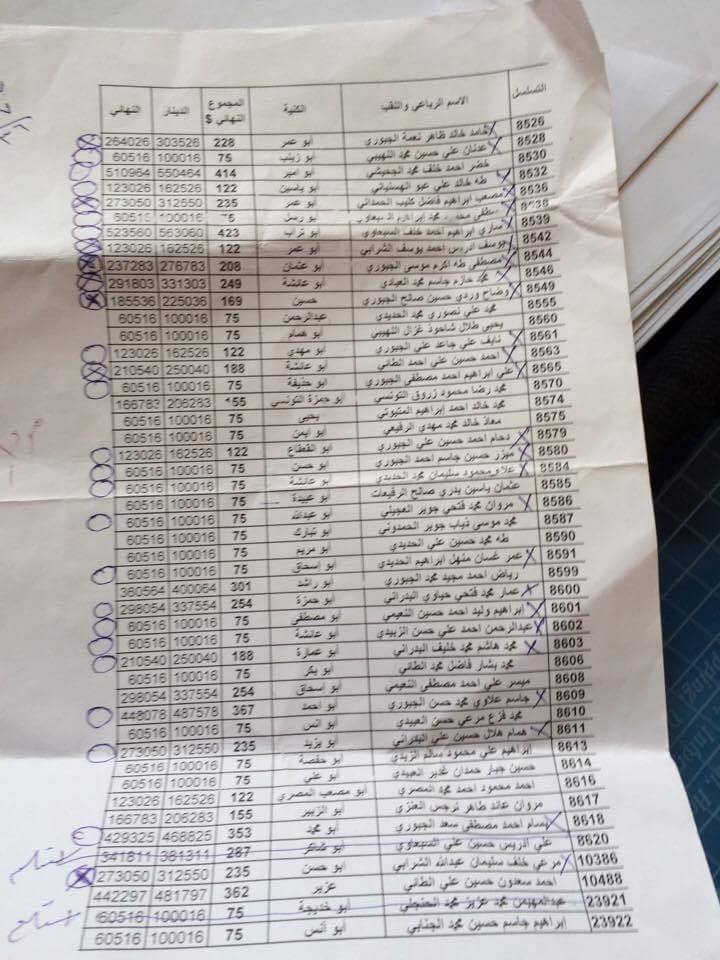 التسلسل الاسم الرباعي واللقب الكنية المجموع النهائي $ الدينار النهائي
8526 حامد خالد ظاهر نعمة الجبوري أبو عمر 228 303526 264026
8528 عدنان علي حسين محمد اللهيبي أبو زينب 75 100016 60516
8530 خضر احمد خلف محمد الجحيشي أبو امير 414 550464 510964
8532 طه خالد علي عبو أبو ياسين 122 162526 123026
8536 مصعب ابراهيم فاضل كليب الحمداني أبو عمر 235 312550 273050
8538 مصطفى محمد إبراهيم السبعاوي أبو رسل 75 100016 60516
8539 ساري ابراهيم احمد خلف السبعاوي أبو تراب 423 563060 523560
8542 يوسف ادريس احمد يوسف الشرابي أبو عمر 122 162526 123026
8544 مصطفى طه اكرم موسى الجبوري أبو عثمان 208 276783 237283
8546 محمد حازم جاسم محمد العبادي أبو عائشة 249 331303 291803
8549 وضاح وردي حسين صالح الجبوري حسين 169 225036 185536
8555 محمد علي نصوري محمد الحديدي عبدالرحمن 75 100016 60516
8560 يحيى طلال شاحوذ غزال اللهيبي ابو همام 75 100016 60516
8561 نايف علي جاعد علي الجبوري ابو مهدي 122 162526 123026
8563 احمد حسين علي احمد الطائي ابو عائشة 188 250040 210540
8565 علي ابراهيم احمد مصطفى الجبوري ابو حذيفة 75 100016 60516
8570 محمد رضا محمود زروق التونسي ابو حمزة التونسي 155 206283 166783
8574 محمد خالد احمد إبراهيم المتيوتي يحيى 75 100016 60516
8575 معاذ خالد محمد مهدي الرفيعي ابو ايمن 75 100016 60516
8579 دحام احمد حسين علي الجبوري ابو القعقاع 122 162526 123026
8580 ميزر حسين جاسم احمد الجبوري ابو حسن 75 100016 60516
8584 علاو محمود سليمان محمد الحديدي ابو عائشة 75 100016 60516
8585 عثمان ياسين بدري صالح الرفيعات ابو عبيدة 75 100016 60516
8586 مروان محمد فتحي جوير العجيلي ابو عبدالله 75 100016 60516
8587 محمد موسى ذياب جوير الحمدوني ابو تبارك 75 100016 60516
8590 طه محمد حسين علي الحديدي ابو مريم 75 100016 60516
8591 عمر غسان منهل ابراهيم الحديدي ابو إسحاق 75 100016 60516
8599 رياض احمد مجيد محمد الجبوري ابو راشد 301 400064 360564
8600 عمار محمد فتحي حياوي البدراني ابو حمزة 254 337554 298054
8601 ابراهيم وليد احمد حسين النعيمي ابو مصطفى 75 100016 60516
8602 عبدالرحمن احمد علي حسن الزبيدي ابو عائشة 75 100016 60516
8603 محمد هاشم محمد خليف البدراني ابو عمارة 188 250040 210540
8606 محمد بشار فاضل محمد الطائي ابو بكر 75 100016 60516
8608 ميسر علي احمد مصطفى النعيمي ابو اسحاق 254 337554 298054
8609 جاسم علاوي محمد حسن الجبوري ابو احمد 367 487578 448078
8610 محمد فزع مرعي حسن العبيدي ابو انس 75 100016 60516
8611 همام هلال حسين علي البدراني ابو يزيد 235 312550 273050
8613 ابراهيم علي محمود سالم الزيدي ابو حفصة 75 100016 60516
8614 حسين جبار حمدان غدير العبيدي ابو علي 75 100016 60516
8616 احمد محمود احمد محمد المصري ابو مصعب المصري 122 162526 123026
8617 مروان عائد طاهر نرجس العنزي ابو الزبير 155 206283 166783
8618 بسام احمد مصطفى سعد الجبوري ابو محمد 353 468825 429325
8620 علي ادريس حسين علي السبعاوي ابو شاكر 287 381311 341811
10386 مرعي خلف سليمان عبدالله الشرابي ابو حسن 235 312550 273050
10488 احمد سعدون حسين علي الطائي عزير 362 481797 442297
23921 عبدالمهيمن محمد عزيز محمد ابو خديجة 75 100016 60516
23922 إبراهيم جاسم حسين محمد الجنابي ابو أنس 75 100016 60516